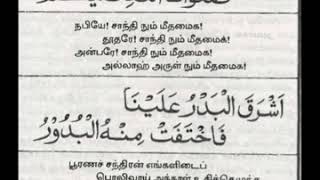 நபியே! சாந்தி நும் மீதமைக!
தூதரே! சாந்தி நும் மீதமைக!
அன்பரே! சாந்தி நும் மீதமைக!
அல்லாஹ் அருள் நும் மீதமைக!
اَشْرَقَ الْبَدْرُ عَلَيْنَا
فَاخْتَفَتْ مِنْهُ الْبُدُوْرُ
பூரணச் சந்திரன் எங்களிடைப்